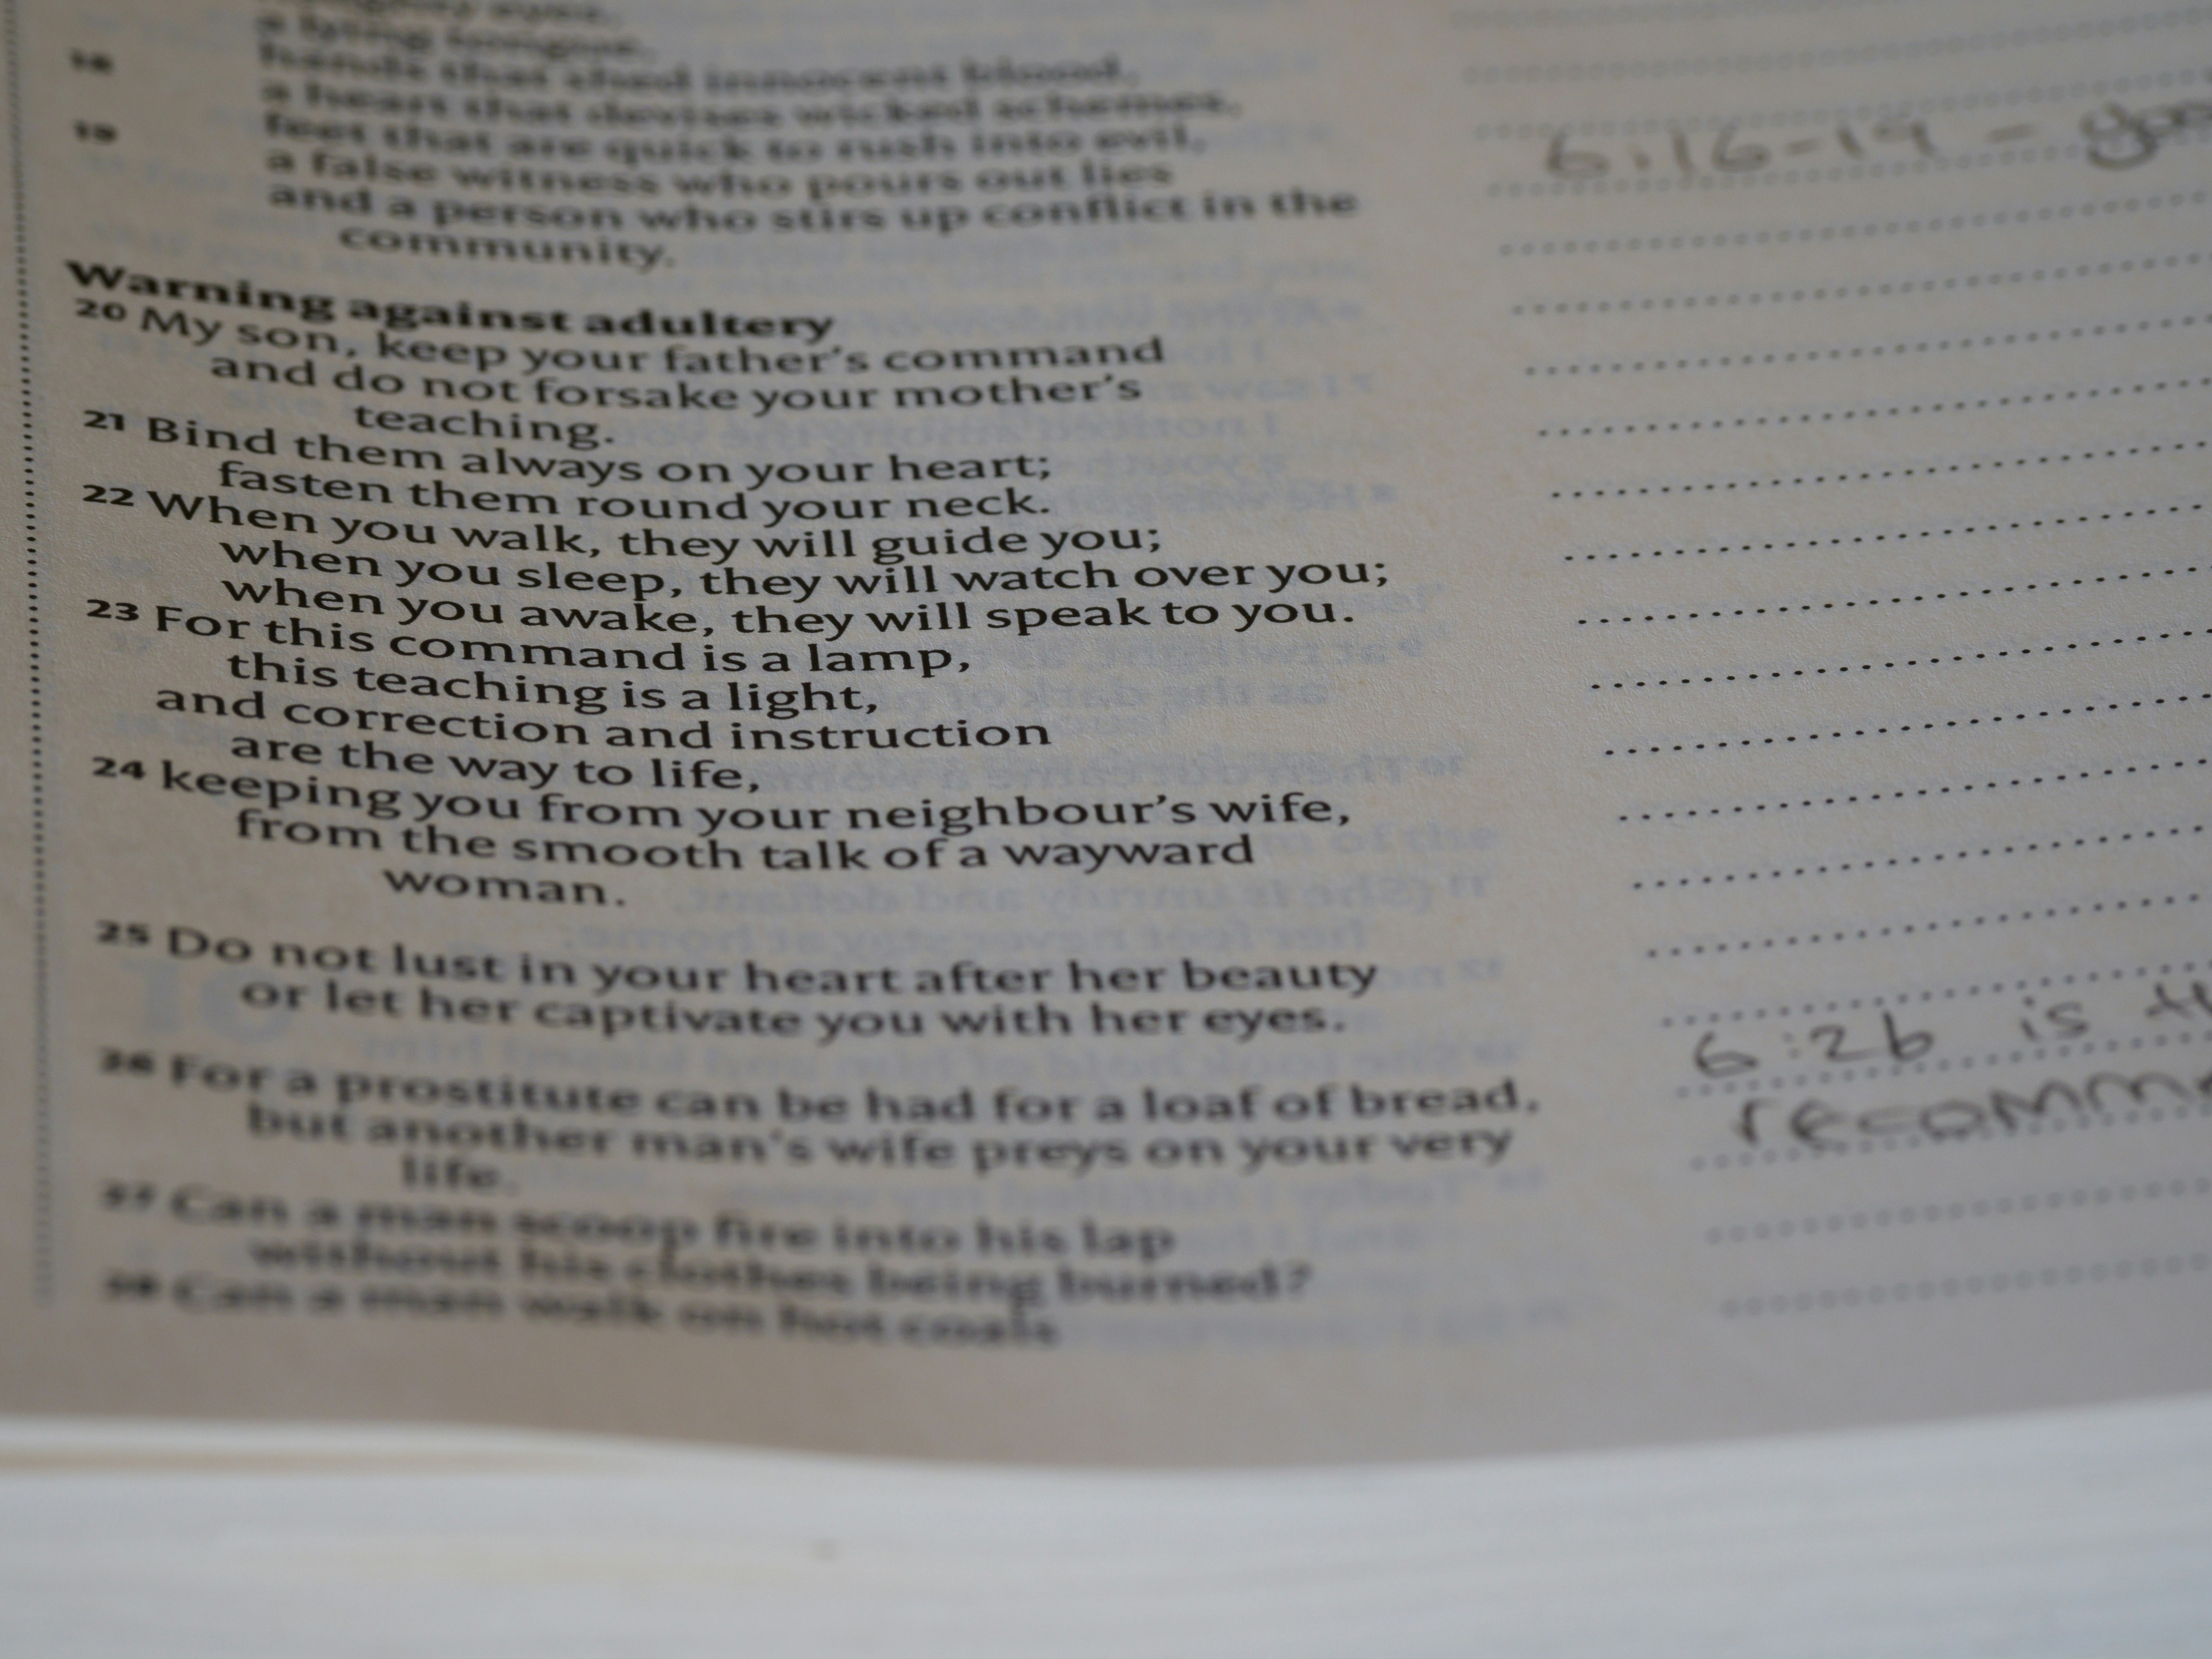 eyes,
a lying tongue,
18 hands that shed innocent blood,
a heart that devises wicked schemes,
19 feet that are quick to rush into evil,
a false witness who pours out lies
and a person who stirs up conflict in the
community.
Warning against adultery
20 My son, keep your father's command
and do not forsake your mother's
teaching.
21 Bind them always on your heart;
fasten them round your neck.
22 When you walk, they will guide you;
when you sleep, they will watch over you;
when you awake, they will speak to you.
23 For this command is a lamp,
this teaching is a light,
and correction and instruction
are the way to life,
24 keeping you from your neighbour's wife,
from the smooth talk of a wayward
woman.
25 Do not lust in your heart after her beauty
or let her captivate you with her eyes.
26 For a prostitute can be had for a loaf of bread,
but another man's wife preys on your very
life.
27 Can a man scoop fire into his lap
without his clothes being burned?
28 Can a man walk on hot coals
6:16-19 -
6:26 is